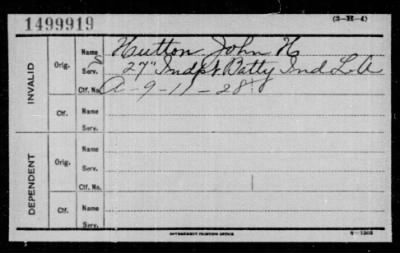 1499919
(3-H-4)
INVALID
Orig.
Name
Hutton John H
Serv.
27" Indpt Batty Ind L. A
Ctf. No.
A-9-11-28
Ctf.
Name
Serv.
DEPENDENT
Orig.
Name
Serv.
Ctf. No.
Ctf.
Name
Serv.
GOVERNMENT PRINTING OFFICE